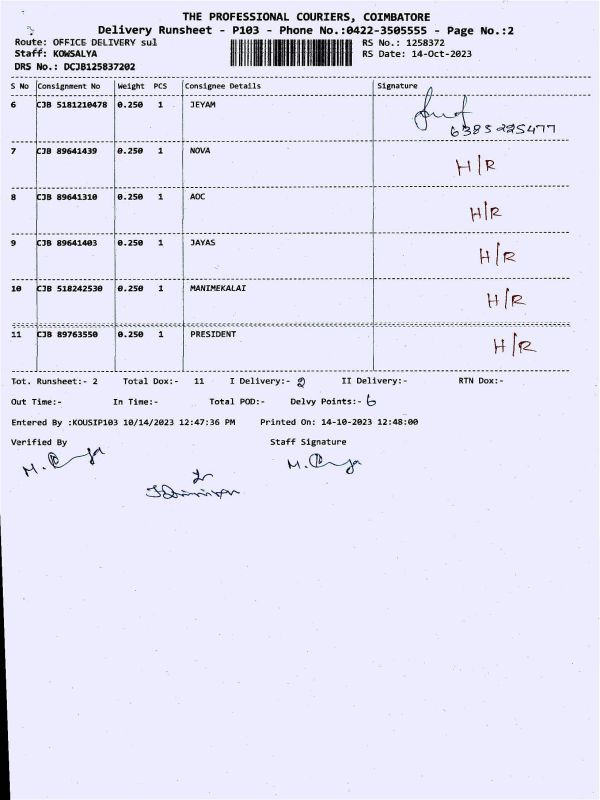 THE PROFESSIONAL COURIERS, COIMBATORE
Delivery Runsheet - P103 - Phone No.:0422-3505555 - Page No.:2
Route: OFFICE DELIVERY sul RS No.: 1258372
Staff: KOWSALYA RS Date: 14-Oct-2023
DRS No.: DCJB125837202
S No Consignment No Weight PCS Consignee Details Signature
6 CJB 5181210478 0.250 1 JEYAM
6385225477
7 CJB 89641439 0.250 1 NOVA H/R
8 CJB 89641310 0.250 1 AOC H/R
9 CJB 89641403 0.250 1 JAYAS H/R
10 CJB 518242530 0.250 1 MANIMEKALAI H/R
11 CJB 89763550 0.250 1 PRESIDENT H/R
Tot. Runsheet:- 2 Total Dox:- 11 I Delivery:- 2 II Delivery:- RTN Dox:-
Out Time:- In Time:- Total POD:- Delvy Points:- 6
Entered By :KOUSIP103 10/14/2023 12:47:36 PM Printed On: 14-10-2023 12:48:00
Verified By Staff Signature